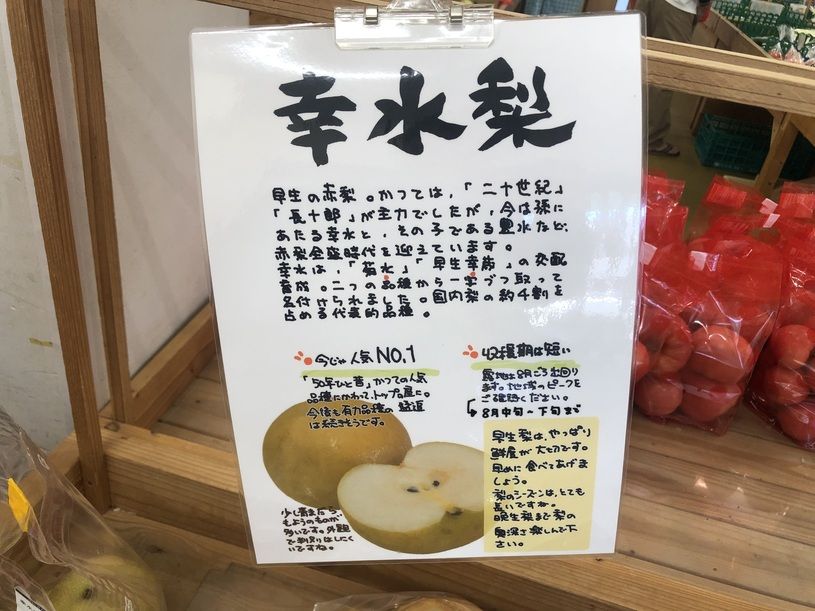 幸水梨
早生の赤梨。かつては、「二十世紀」
「長十郎」が主力でしたが、今は孫に
あたる幸水と、その子である豊水など、
赤梨全盛時代を迎えています。
幸水は、「菊水」「早生幸蔵」の交配
育成。二つの品種から一字づつ取って
名付けられました。国内梨の約4割を
占める代表的品種。
今じゃ人気NO.1
「50年ひと昔」かつての人気
品種にかわってトップ屋に。
今後も有力品種の
は続きそうです。
収穫期は短い
露地は8月ごろ出回り
ます。地域のピークを
ご確認ください。
↳8月中旬〜下旬まで
少し青まだら
もようのものが
多いです。外観
で判別はしにく
いですね。
早生梨は、やっぱり
鮮度が大切です。
早めに食べてあげま
しょう。
梨のシーズンは、とても
長いですね。
晩生梨まで梨の
奥深さ楽しんで下
さい。